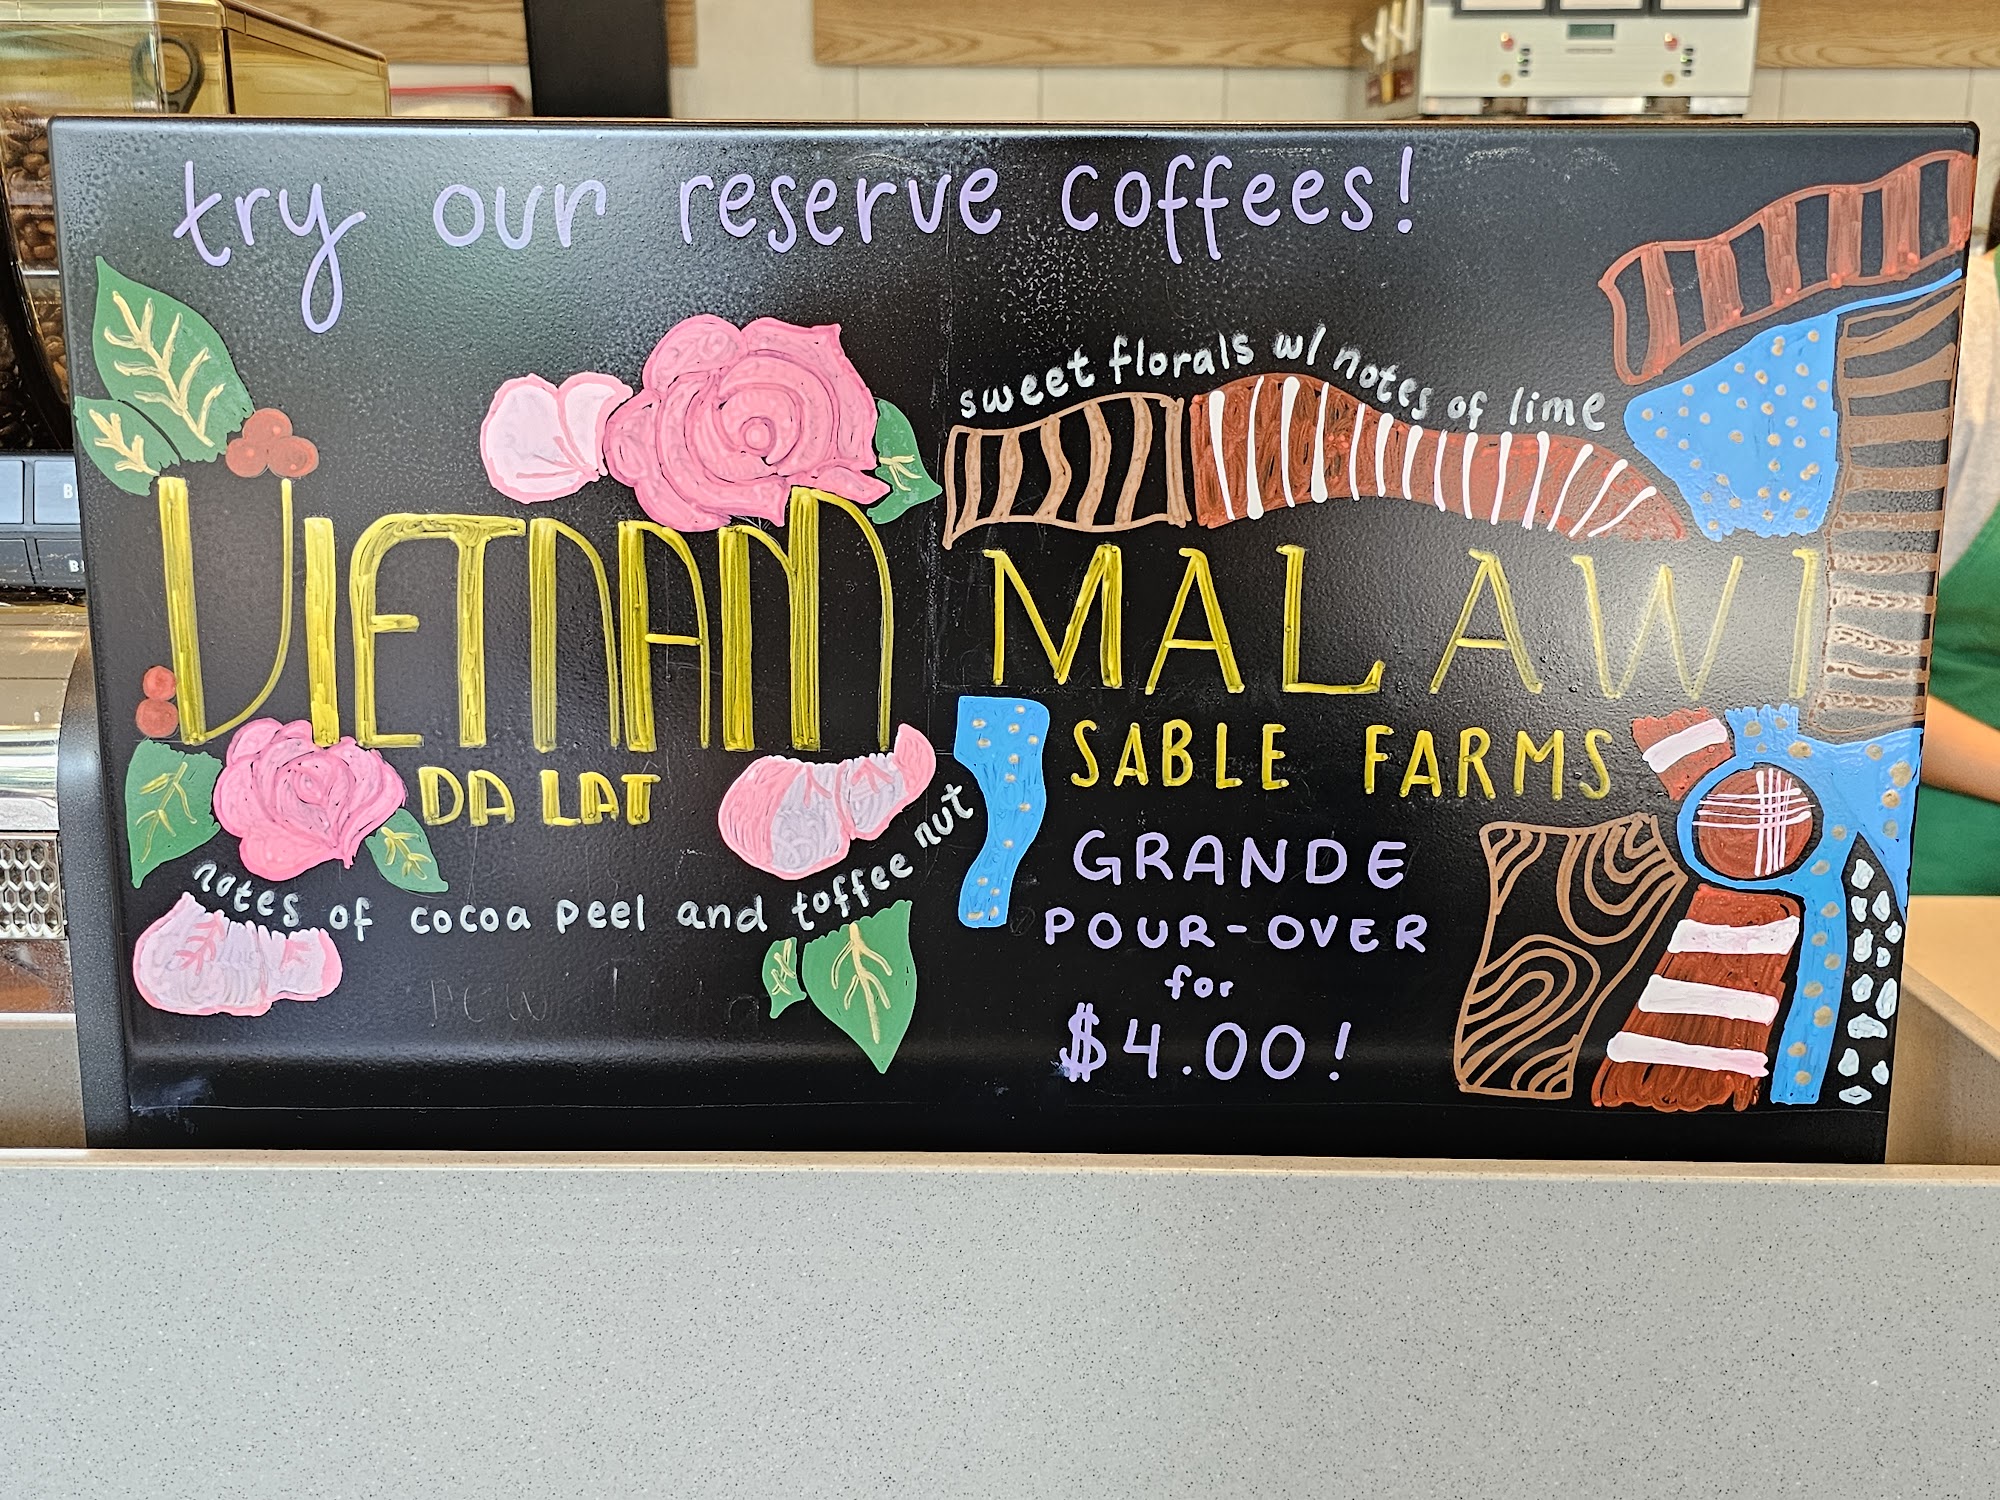 try our reserve coffees!
VIETNAM
DA LAT
notes of cocoa peel and toffee nut
sweet florals w/ notes of lime
MALAWI
SABLE FARMS
GRANDE
POUR-OVER
for
$4.00!